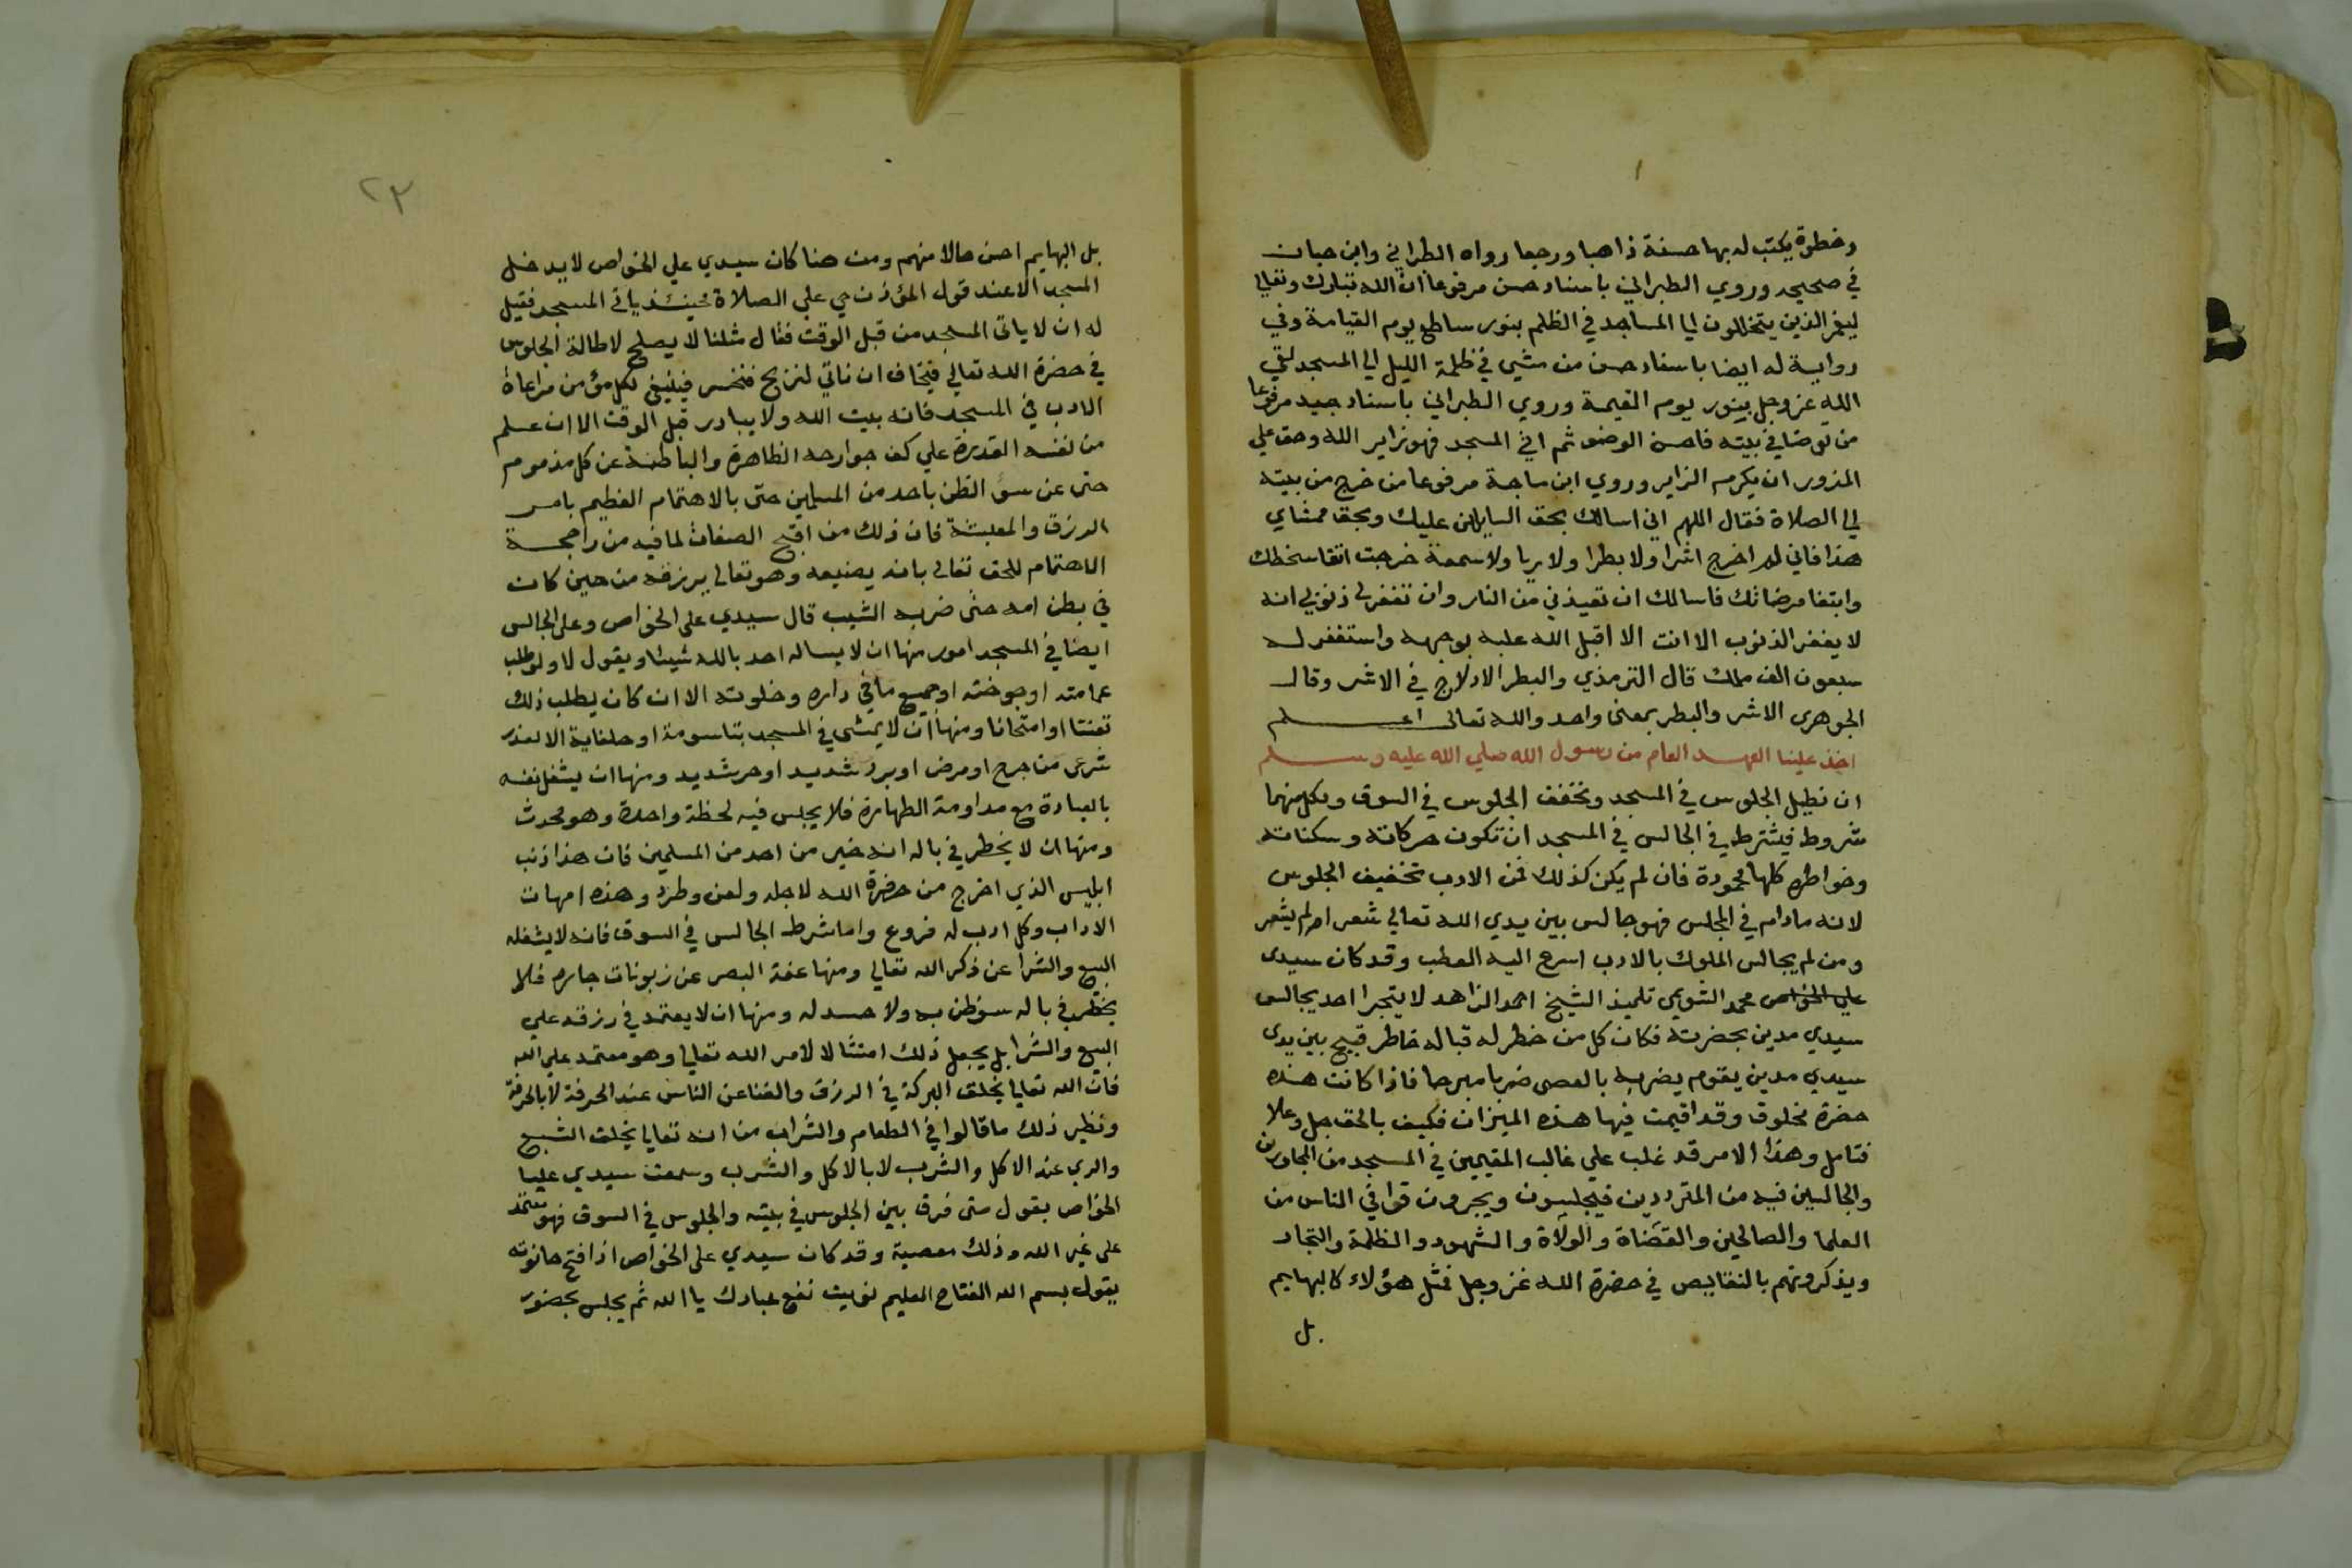 وخطوة يكتب له بها حسنة ذاهبا ورجعا رواه الطبراني وابن حبان
في صحيحه وروي الطبراني باسناد حسن مرفوعا ان الله تبارك وتعالي
ليغمر الذين يتخللون الي المساجد في الظلم بنور ساطع يوم القيامة وفي
رواية له ايضا باسناد حسن من مشي في ظلمة الليل الي المسجد لقي
الله عز وجل بينور يوم القيمة وروي الطبراني باسناد جيد مرفوعا
من توضا في بيته فاحسن الوضو ثم اتي المسجد فهو زاير الله وحق علي
المزور ان يكرم الزاير وروي ابن ماجة مرفوعا من خرج من بيته
الي الصلاة فقال اللهم اني اسالك بحق السايلين عليك وبحق ممشاي
هذا فاني لم اخرج اشرا ولا بطرا ولا ريا ولا سمعة خرجت اتقا سخطك
وابتغا مرضاتك فاسالك ان تعيذني من النار وان تغفر لي ذنوبي انه
لا يغفر الذنوب الا انت الا اقبل الله عليه بوجهه واستغفر له
سبعون الف ملك قال الترمذي والبطر الادلاج في الاشر وقال
الجوهرى الاشر والبطر بمعنى واحد والله تعالى اعلم
اخذ علينا العهد العام من رسول الله صلي الله عليه وسلم
ان نطيل الجلوس في المسجد ونخفف الجلوس في السوق ولكل منهما
شروط فيشترط في الجالس في المسجد ان تكون حركاته وسكناته
وخواطره كلها محمودة فان لم يكن كذلك فمن الادب تخفيف الجلوس
لانه مادام في المجلس فهو جالس بين يدي الله تعالي شعر ام لم يشعر
ومن لم يجالس الملوك بالادب اسرع اليه العطب وقد كان سيدى
علي الخواص محمد الشويمي تلميذ الشيخ احمد الزاهد لا يتجرا احد يجالس
سيدي مدين بحضرته فكان كل من خطر له قباله خاطر قبيح بين يدى
سيدي مدين يقوم يضربه بالعصى ضربا مبرحا فاذا كانت هذه
حضرة مخلوق وقد اقيمت فيها هذه الميزان فكيف بالحق جل وعلا
فتامل وهذا الامر قد غلب علي غالب المقيمين في المسجد من المجاورين
والجالسين فيه من المترددين فيجلسون ويجرون قوافي الناس من
العلما والصالحين والقضاة والولاة والشهود والظلمة والتجار
ويذكرونهم بالنقايص في حضرة الله عز وجل فمثل هؤلاء كالبهايم
بل
٢٣
بل البهايم احسن حالا منهم ومن هنا كان سيدي علي الخواص لا يدخل
المسجد الا عند قول المؤذن حي علي الصلاة فحينئذ ياتي المسجد فقيل
له ان لا ياتى المسجد من قبل الوقت فقال مثلنا لا يصلح لاطالة الجلوس
في حضرة الله تعالي فنخاف ان ناتي لنربح فنخسر فينبغي لكل مؤمن مراعاة
الادب في المسجد فانه بيت الله ولا يبادر قبل الوقت الا ان علم
من نفسه القدرة علي كف جوارحه الظاهرة والباطنة عن كل مذموم
حتى عن سؤ الظن باحد من المسلمين حتى بالاهتمام العظيم بامر
الرزق والمعيشة فان ذلك من اقبح الصفات لما فيه من رائحة
الاهتمام للحق تعالى بانه يضيعه وهو تعالي يرزقه من حين كان
في بطن امه حتى ضربه الشيب قال سيدي على الخواص وعلى الجالس
ايضا في المسجد امور منها ان لا يساله احد بالله شيئا ويقول لا ولو طلب
عمامته او جوخته او جميع ما في داره وخلوته الا ان كان يطلب ذلك
تعنتا او امتحانا ومنها ان لا يمشى في المسجد بتاسومة او حلفاية الا لعذر
شرعى من جرح او مرض او برد شديد او حر شديد ومنها ان يشغل نفسه
بالعبادة مع مداومة الطهارة فلا يجلس فيه لحظة واحدة وهو محدث
ومنها ان لا يخطر في باله انه خير من احد من المسلمين فان هذا ذنب
ابليس الذي اخرج من حضرة الله لاجله ولعن وطرد وهذه امهات
الاداب وكل ادب له فروع واما شرط الجالس في السوق فانه لا يشغله
البيع والشرا عن ذكر الله تعالي ومنها عفة البصر عن زبونات جاره فلا
يخطر في باله سؤ ظن به ولا حسد له ومنها ان لا يعتمد في رزقه علي
البيع والشرا بل يجعل ذلك امتثالا لامر الله تعالي وهو معتمد علي الله
فان الله تعالي يخلق البركة في الرزق والغنا عن الناس عند الحرفة لا بالحرفة
ونظير ذلك ما قالوا في الطعام والشراب من انه تعالي يخلق الشبع
والري عند الاكل والشرب لا بالاكل والشرب وسمعت سيدي عليا
الخواص يقول متى فرق بين الجلوس في بيته والجلوس في السوق فهو معتمد
على غير الله وذلك معصية وقد كان سيدي على الخواص اذا فتح حانوته
يقول بسم الله الفتاح العليم نويت نفع عبادك يا الله ثم يجلس بحضور